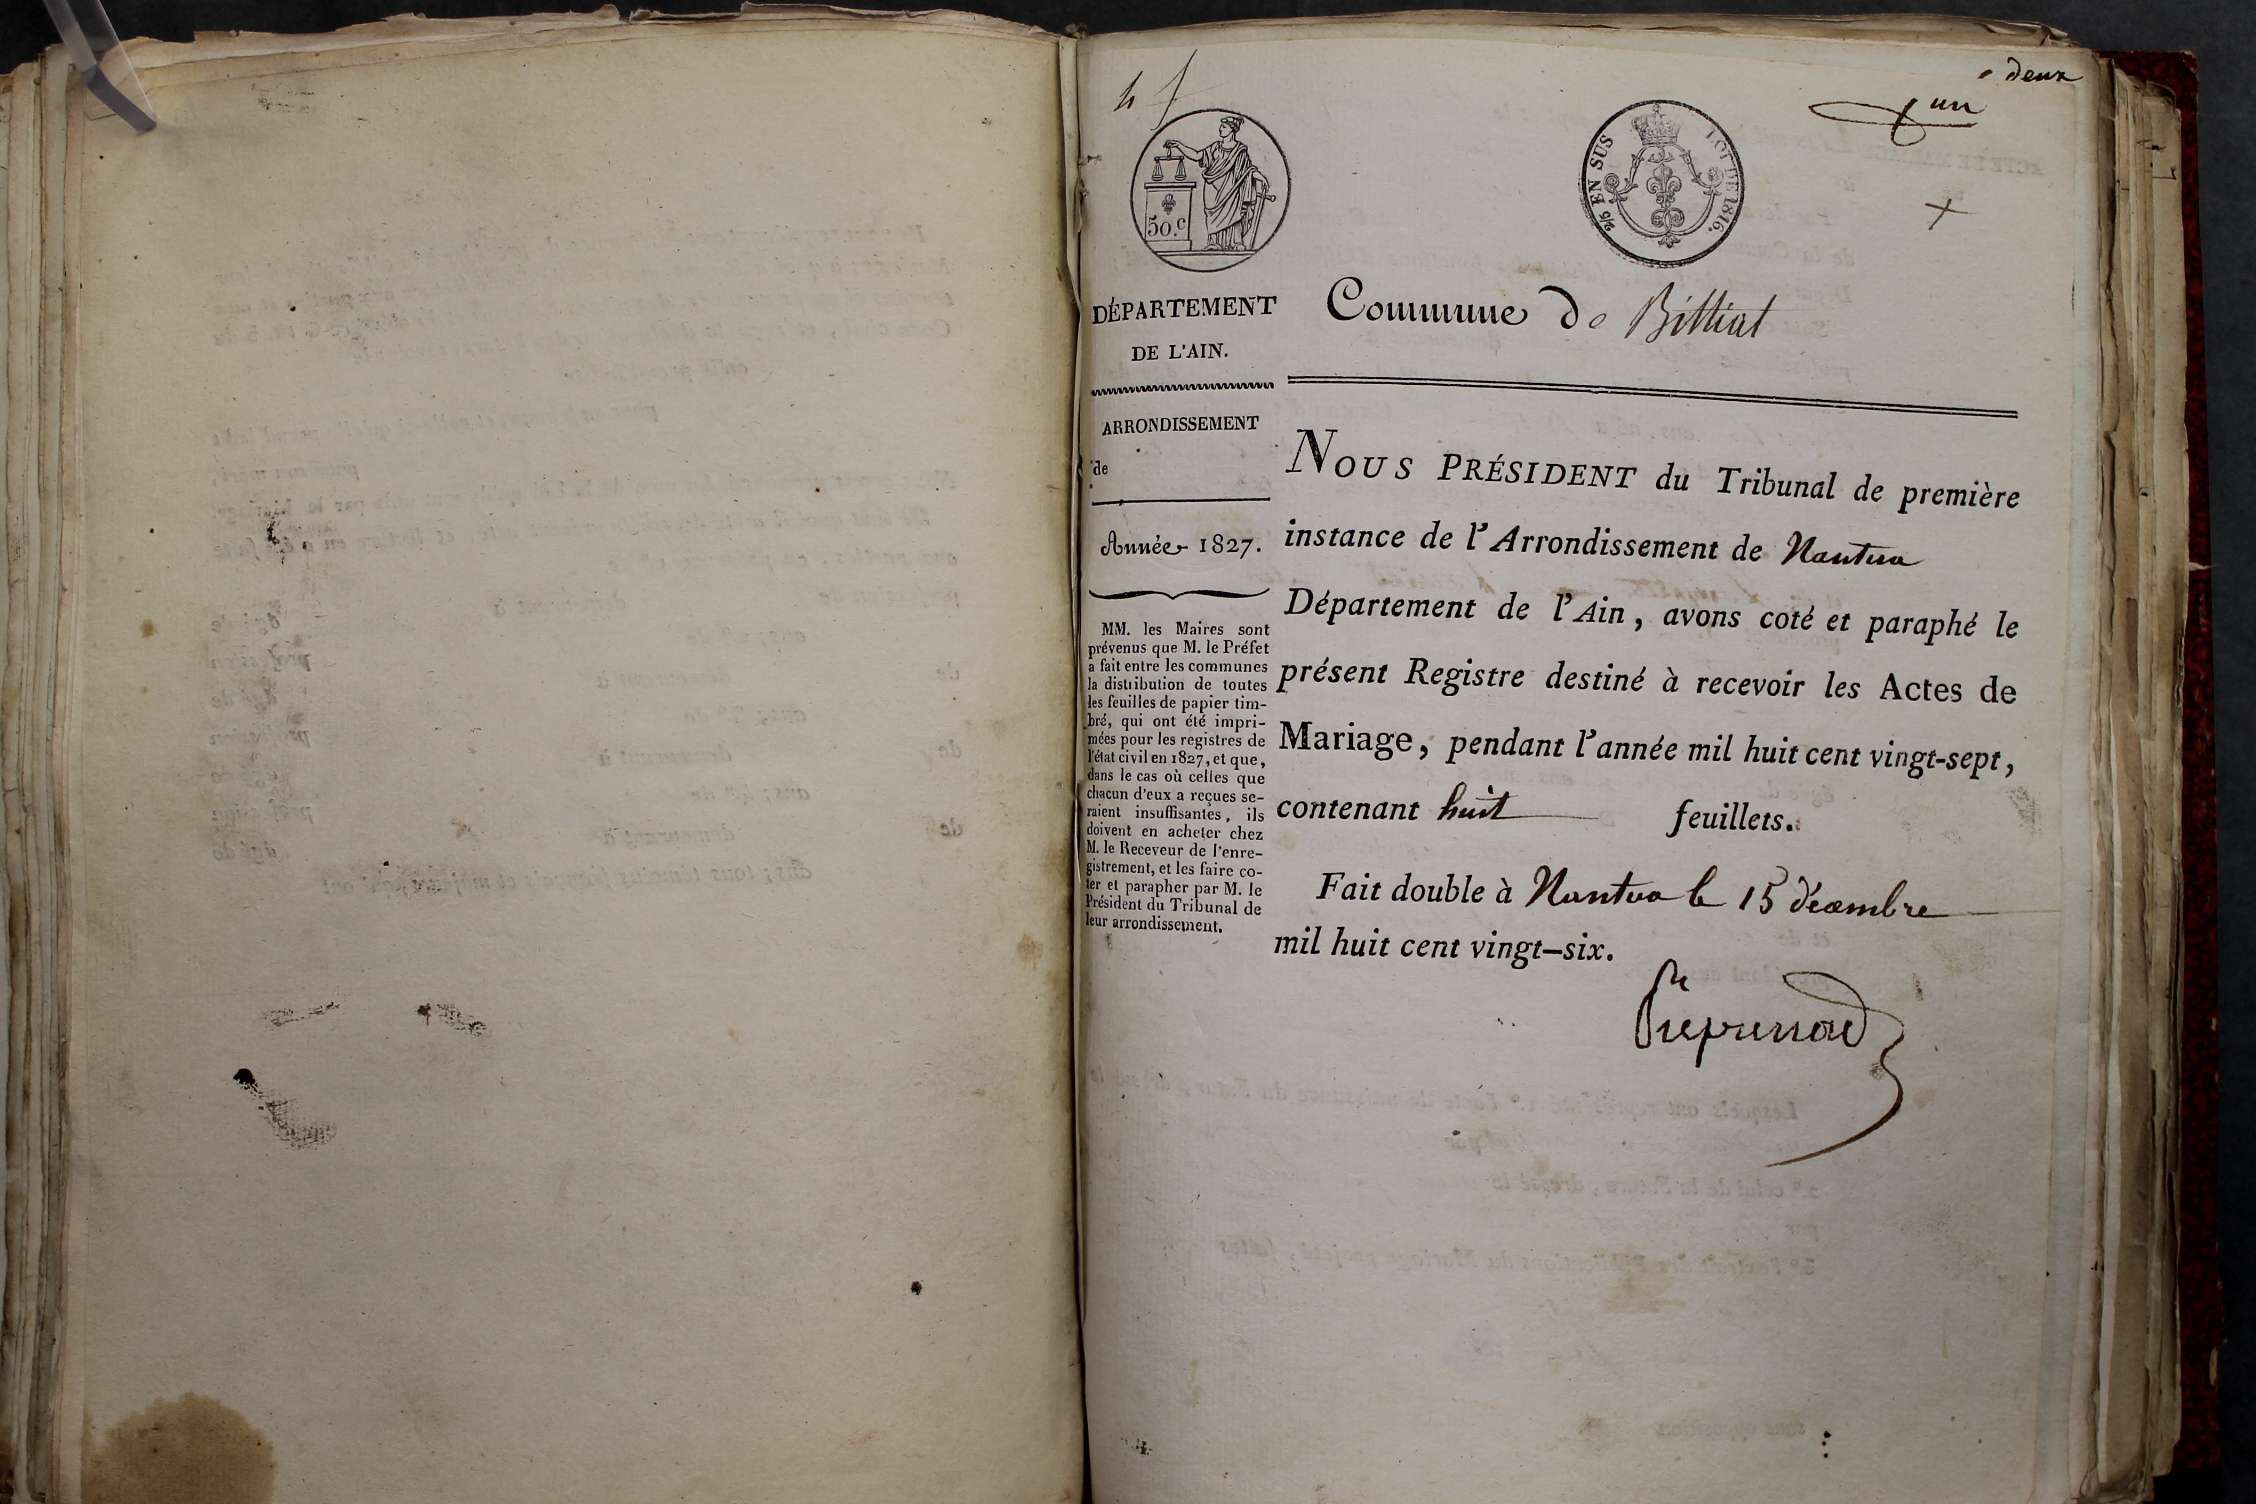 deux
un
50.c
2/5 EN SUS
LOI DE 1816.
DÉPARTEMENT
DE L'AIN.
ARRONDISSEMENT
de
Année 1827.
MM. les Maires sont
prévenus que M. le Préfet
a fait entre les communes
la distribution de toutes
les feuilles de papier tim-
bré, qui ont été impri-
mées pour les registres de
l'état civil en 1827, et que,
dans le cas où celles que
chacun d'eux a reçues se-
raient insuffisantes, ils
doivent en acheter chez
M. le Receveur de l'enre-
gistrement, et les faire co-
ter et parapher par M. le
Président du Tribunal de
leur arrondissement.
Commune de Billiat
NOUS PRÉSIDENT du Tribunal de première
instance de l'Arrondissement de Nantua
Département de l'Ain, avons coté et paraphé le
présent Registre destiné à recevoir les Actes de
Mariage, pendant l'année mil huit cent vingt-sept,
contenant huit feuillets.
Fait double à Nantua le 15 décembre
mil huit cent vingt-six.